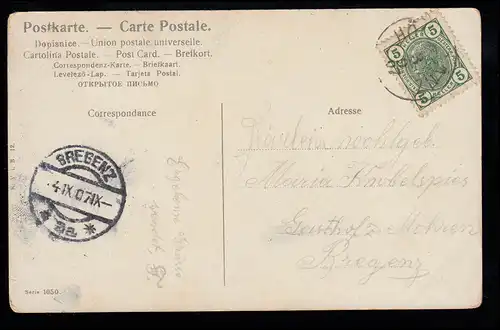 Postkarte. — Carte Postale.
Dopisnice. — Union postale universelle.
Cartolina Postale. — Post Card. — Brefkort.
Correspondenz-Karte. — Briefkaart.
Levelező-Lap. — Tarjeta Postal.
ОТКРЫТОЕ ПИСЬМО
Correspondance
Adresse
5 5
5 5
BREGENZ
4.IX.07.IX
Maria Knobelspies
Gasthof z. Mohren
Bregenz
Serie 1650